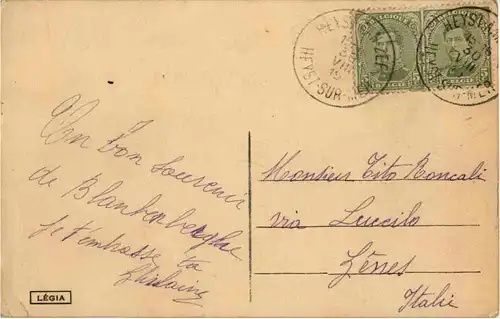 Un bon souvenir
de Blankenberghe
je t'embrasse ta
Ghislaine
LÉGIA
BELGIQUE
HEYST-SUR-MER
HEYST-SUR-MER
Monsieur Tito Roncali
via Luccilo
Gênes
Italie